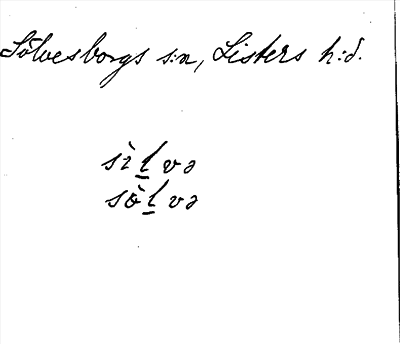 Sölvesborgs s:n, Listers h:d.
sìl̲və
sòl̲və